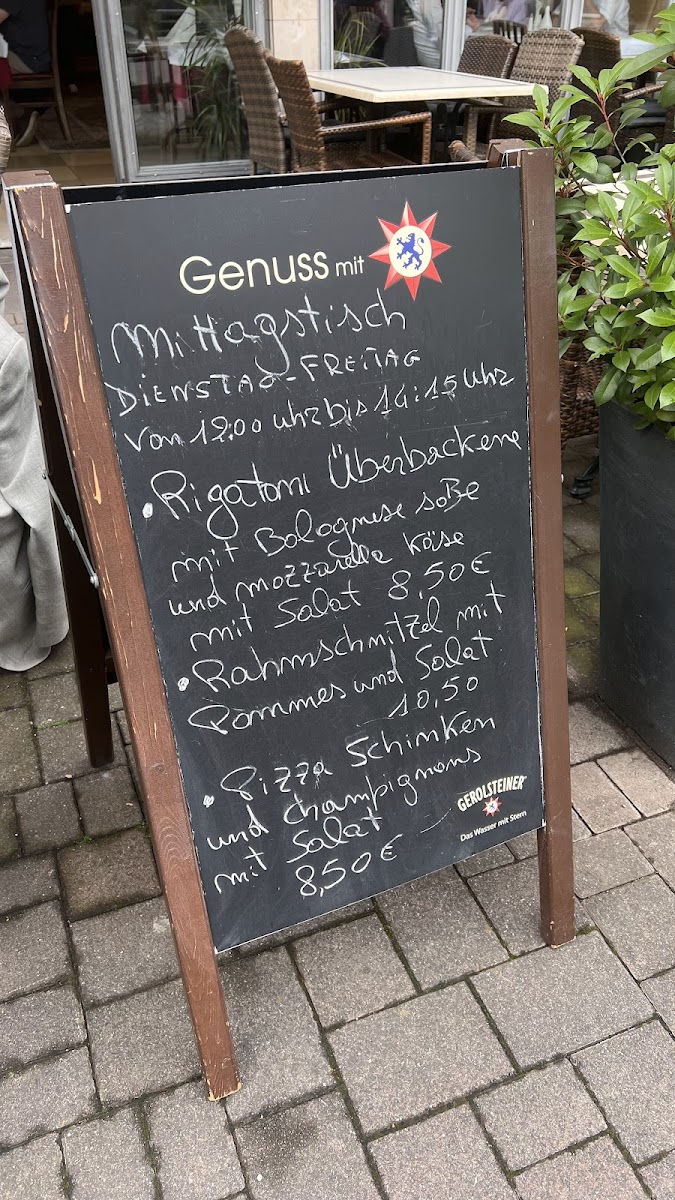 Genuss mit
Mittagstisch
DIENSTAG-FREITAG
Von 12:00 uhr bis 14:15 Uhr
• Rigatoni Überbackene
mit Bolognese soße
und mozzarella Käse
mit Salat 8,50 €
• Rahmschnitzel mit
Pommes und Salat
10,50
• Pizza Schinken
und champignons
mit Salat
8,50 €
GEROLSTEINER
Das Wasser mit Stern